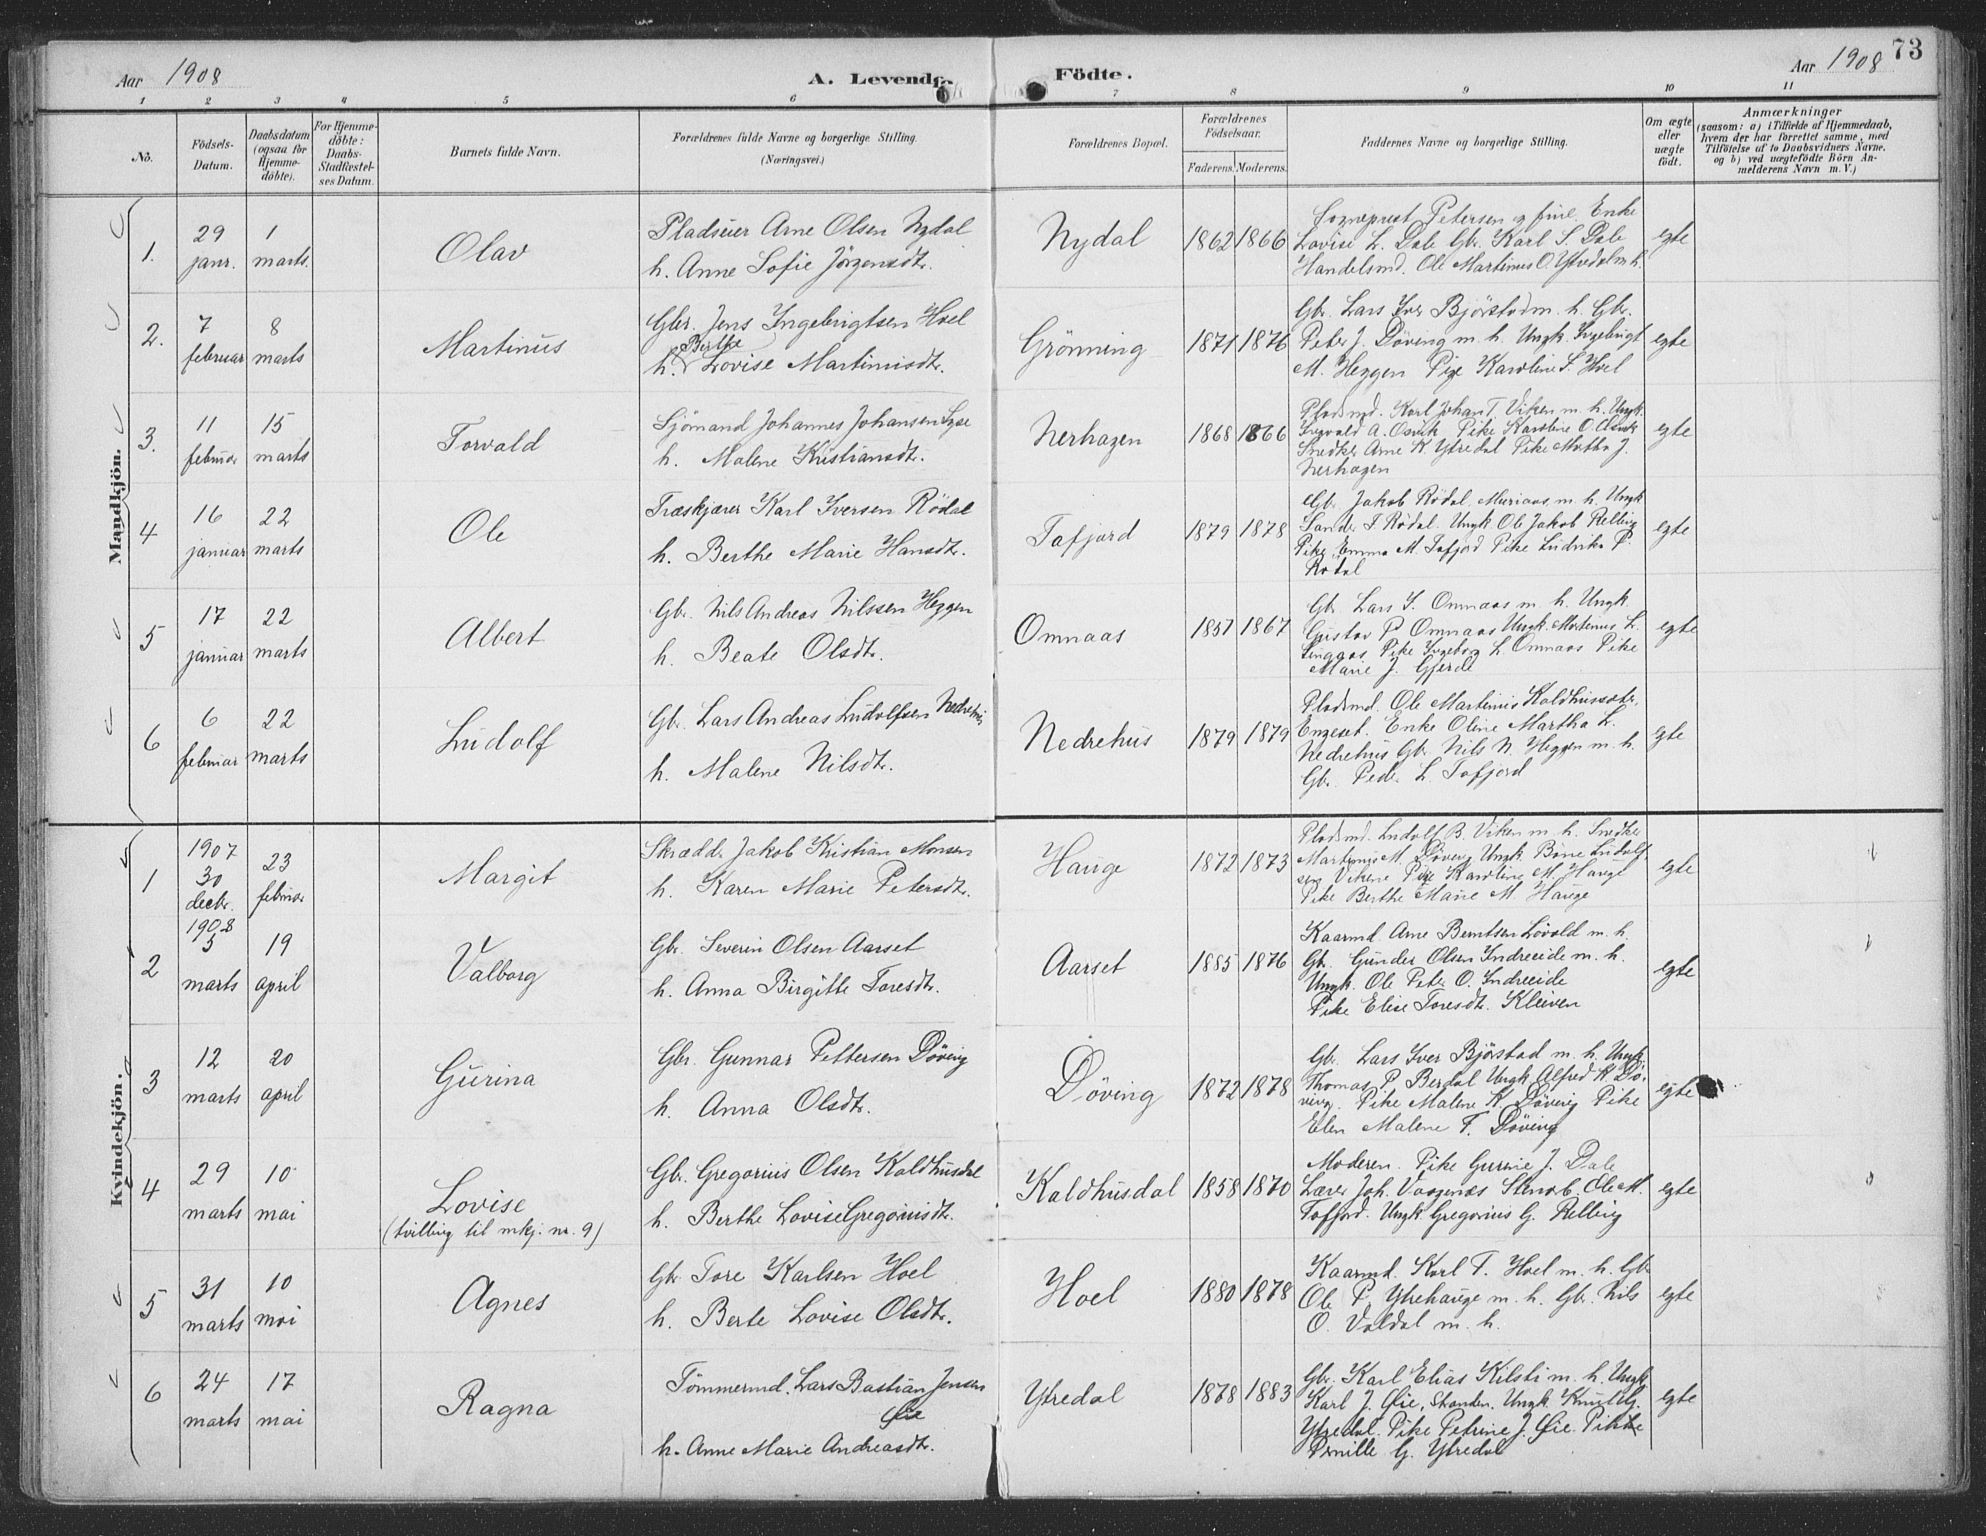 73
Aar 1908
A. Levende
Födte.
Aar 1908
1 2 3 4 5 6 7 8 9 10 11
No.
Födsels-Datum.
Daabsdatum (ogsaa for Hjemme-döbte).
For Hjemme-döbte: Daabs-Stadfæstel-ses Datum.
Barnets fulde Navn.
Forældrenes fulde Navne og borgerlige Stilling.
(Næringsvei.)
Forældrenes Bopæl.
Forældrenes Födselsaar.
Faderens. Moderens.
Faddernes Navne og borgerlige Stilling.
Om ægte eller uægte födt.
Anmærkninger
(saasom: a) i Tilfælde af Hjemmedaab,
hvem der har forrettet samme, med
Tilföielse af to Daabsvidners Navne,
og b) ved uægtefödte Börn An-
melderens Navn m. V.)
Mandkjön.
1. 29 janr. 1 marts. Olav
Pladseier Arne Olsen Nydal
h. Anne Sofie Jörgensdtr.
Nydal 1862 1866
Sogneprest Petersen og frue. Enke
Lovise L. Dale Gbr. Karl S. Dale
Handelsmd. Ole Martinus O. Ytredal m. h.
egte
2. 7 februar 8 marts Martinus
Gbr. Jens Ingebrigtsen Hoel
h. Berthe Lovise Martinusdtr.
Grönning 1871 1876
Gbr. Lars Iver Bjørstad m. h. Gbr.
Peter J. Döving m. h. Ungk. Ingebrigt
M. Heggen Pige Karoline S. Hoel
egte
3. 11 februar 15 marts Torvald
Sjömand Johannes Johansen Lyse
h. Malene Kristiansdtr.
Nerhagen 1868 1866
Pladsmd. Karl Johan T. Viken m. h. Ungk.
Ingvald A. Osvik Pike Karoline O. Osvik
Snedker Arne K. Ytredal Pike Martha J.
Nerhagen
egte
4 16 januar 22 marts Ole
Træskjærer Karl Iversen Rödal
h. Berthe Marie Hansdtr.
Tafjord 1879 1878
Gbr. Jakob Rödal Muriaas m. h. Ungk
Sander I Rödal. Ungk Ole Jakob Relling
Pike Emma M. Tafjord Pike Ludvika P.
Rødal
egte
5 17 januar 22 marts Albert
Gbr. Nils Andreas Nilssen Heggen
h. Beate Olsdtr.
Omnaas 1857 1867
Gbr. Lars S. Omnaas m. h. Ungk.
Gustav P. Omnaas Ungk. Martinus L.
Pike Ingeborg L. Omnaas Pike
Marie J. Gjerde
egte
6 6 februar 22 marts Ludolf
Gbr. Lars Andreas Ludolfsen Nedrehus
h. Malene Nilsdtr.
Nedrehus 1879 1879
Pladsmd. Ole Martinus Kaldhussæter,
Engeset. Enke Oline Martha L.
Nedrehus Gbr. Nils N. Heggen m. h.
Gbr. Peder L. Tafjord
egte
Kvindekjön.
1 1907 30 decbr. 23 februar Margit
Skrædder Jakob Kristian Monsen
h. Karen Marie Petersdtr.
Hauge 1872 1873
Pladsmd. Ludolf B. Viken m. h. Snedker
Martinus M. Döving Ungk. Bine Ludolf-
sen Vikene Pige Karoline M. Hauge
Pike Berthe Marie M. Hauge
egte
2 1908 5 marts 19 april Valborg
Gbr. Severin Olsen Aarset
h. Anna Birgitte Toresdtr.
Aarset 1885 1876
Kaarmd. Arne Berntsen Lövold m. h.
Gbr. Gunder Olsen Indreeide m. h.
Ungk. Ole Peter O. Indreeide
Pike Elise Toresdtr. Kleiven
egte
3 12 marts 20 april Gurina
Gbr. Gunnar Pettersen Döving
h. Anna Olsdtr.
Döving 1872 1878
Gbr. Lars Iver Bjørstad m. h. Ungk.
Thomas P. Berdal Ungk Alfred K. Dö-
ving. Pike Malene K. Döving Pike
Elen Malene T. Döving
egte
4 29 marts 10 mai Lovise
(tvilling til mkj. nr. 9)
Gbr. Gregorius Olsen Kaldhusdal
h. Berthe Lovise Gregoriusdtr.
Kaldhusdal 1858 1870
Moderen. Pike Gurine J. Dale
Lærer Joh. Vaagenæs Stenarb. Ole M.
Tafjord. Ungk. Gregorius G. Relling
egte
5 31 marts 10 mai Agnes
Gbr Tore Karlsen Hoel
h. Berte Lovise Olsdtr.
Hoel 1880 1878
Kaarmd. Karl T. Hoel m. h. Gbr
Ole P. Ytrehauge m. h. Gbr. Nils
O. Valdal m. h.
egte
6 24 marts 17 mai Ragna
Tömmermd. Lars Bastian Jensen
Øie
h. Anne Marie Andreasdtr.
Ytredal 1878 1883
Gbr. Karl Elias Kilsti m. h. Ungk
Karl J. Øie, Stranden. Ungk. Knut G.
Ytredal. Pike Petrine J. Øie. Pike
Pernille G. Ytredal
egte